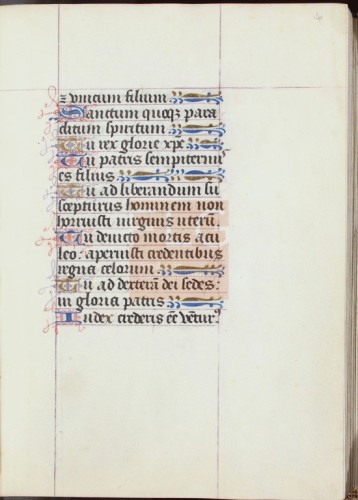 ⁊ unicum filium
Sanctum quoqȝ para
clitum spiritum
Tu rex glorie xpe
Tu patris sempiternus
es filius
Tu ad liberandum su
scepturus hominem non
horruisti virginis uterū
Tu devicto mortis acu
leo: aperuisti credentibus
regna celorum
Tu ad dexterā dei sedes:
in gloria patris
Iudex crederis eē ventur⁹